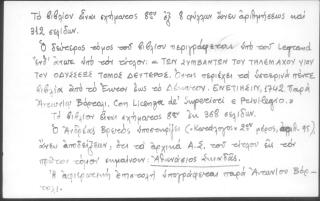 Τὸ βιβλίον εἶναι σχήματος 8ον ἐξ 8 φύλλων ἄνευ ἀριθμήσεως καὶ
312 σελίδων.
Ὁ δεύτερος τόμος τοῦ βιβλίου περιγράφεται ὑπὸ τοῦ Legrand
ὑπὸ τὸν τίτλον: = ΤΩΝ ΣΥΜΒΑΝΤΩΝ ΤΟΥ ΤΗΛΕΜΑΧΟΥ ΥΙΟΥ
ΤΟΥ ΟΔΥΣΣΕΩΣ ΤΟΜΟΣ ΔΕΥΤΕΡΟΣ. Ὅστις περιέχει τὰ ὑστερινὰ πέντε
βιβλία ἀπὸ τὸ ἕως τὸ Δέκατον. ΕΝΕΤΙΗΣΙΝ, 1742 παρὰ
Ἀντωνίῳ Βόρτολι. Con Licenza de' Superiori e Privilegio. =
Τὸ βιβλίον εἶναι σχήματος 8ον ἐκ 368 σελίδων.
Ὁ Ἀνδρέας Βρετὸς ὑποστηρίζει (=Κατάλογος= 2ον μέρος, ἀριθ. 95),
ἄνευ ἀποδείξεων, ὅτι τὰ ἀρχικὰ Α.Σ. τοῦ τίτλου εἰς τὸν
πρῶτον τόμον σημαίνουν: Ἀθανάσιος Σκιαδᾶς.
Ἡ ἀφιερωτικὴ ἐπιστολὴ ὑπογράφεται παρὰ Ἀντωνίου Βόρ-
τολι.